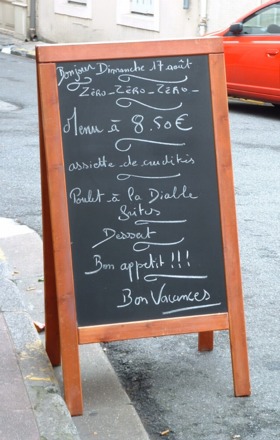 Bonjour Dimanche 17 août
Zéro - Zéro - Zéro -
Menu à 8.50€
assiette de crudités
Poulet à la Diable
frites
Dessert
Bon appetit !!!
Bon Vacances